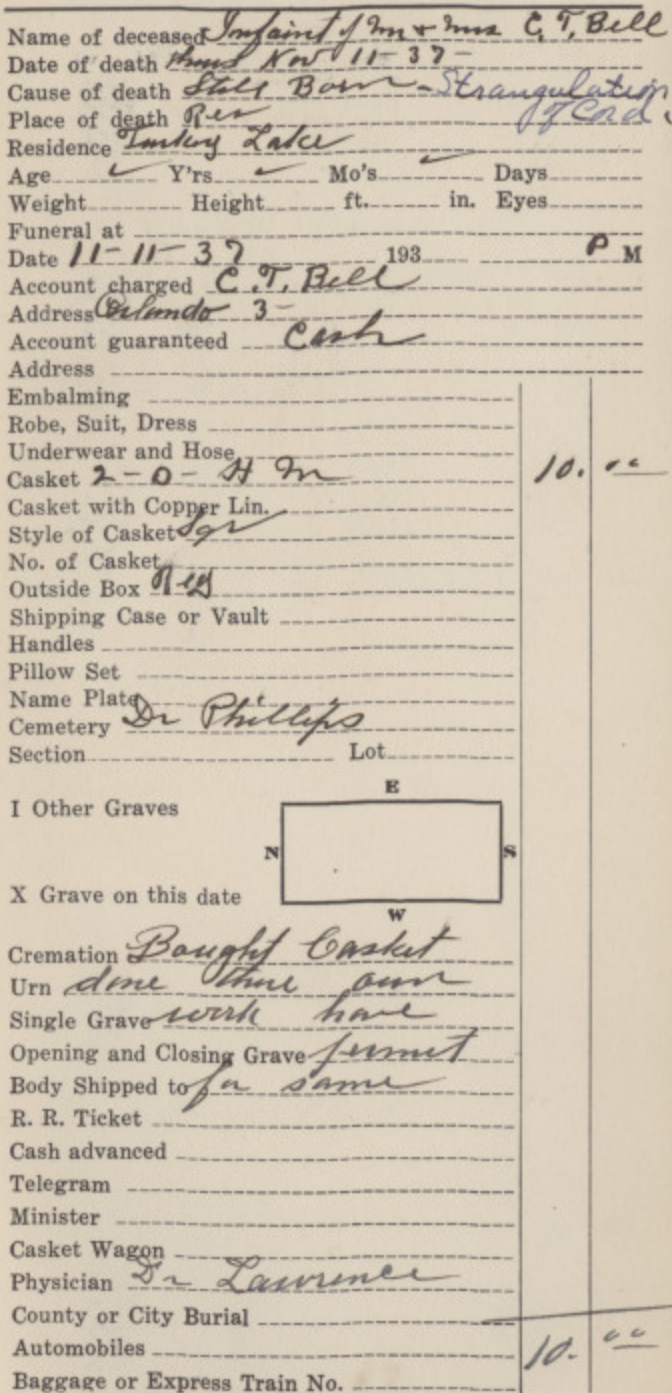 Name of deceased Infaint of Mr & Mrs C. T. Bell
Date of death thurs Nov 11-37-
Cause of death Still Born - Strangulation
of Cord
Place of death Res
Residence Turkey Lake
Age ✓ Y'rs ✓ Mo's ✓ Days
Weight Height ft. in. Eyes
Funeral at
Date 11-11-37 193 P M
Account charged C. T. Bell
Address Orlando 3-
Account guaranteed Cash
Address
Embalming
Robe, Suit, Dress
Underwear and Hose
Casket 2-0- H M 10.00
Casket with Copper Lin.
Style of Casket Sqr
No. of Casket
Outside Box Reg
Shipping Case or Vault
Handles
Pillow Set
Name Plate
Cemetery Dr Phillips
Section Lot
E
I Other Graves
N S
X Grave on this date
W
Cremation Bought Casket
Urn done there own
Single Grave work have
Opening and Closing Grave permit
Body Shipped to for same
R. R. Ticket
Cash advanced
Telegram
Minister
Casket Wagon
Physician Dr Lawrence
County or City Burial
Automobiles 10.00
Baggage or Express Train No.